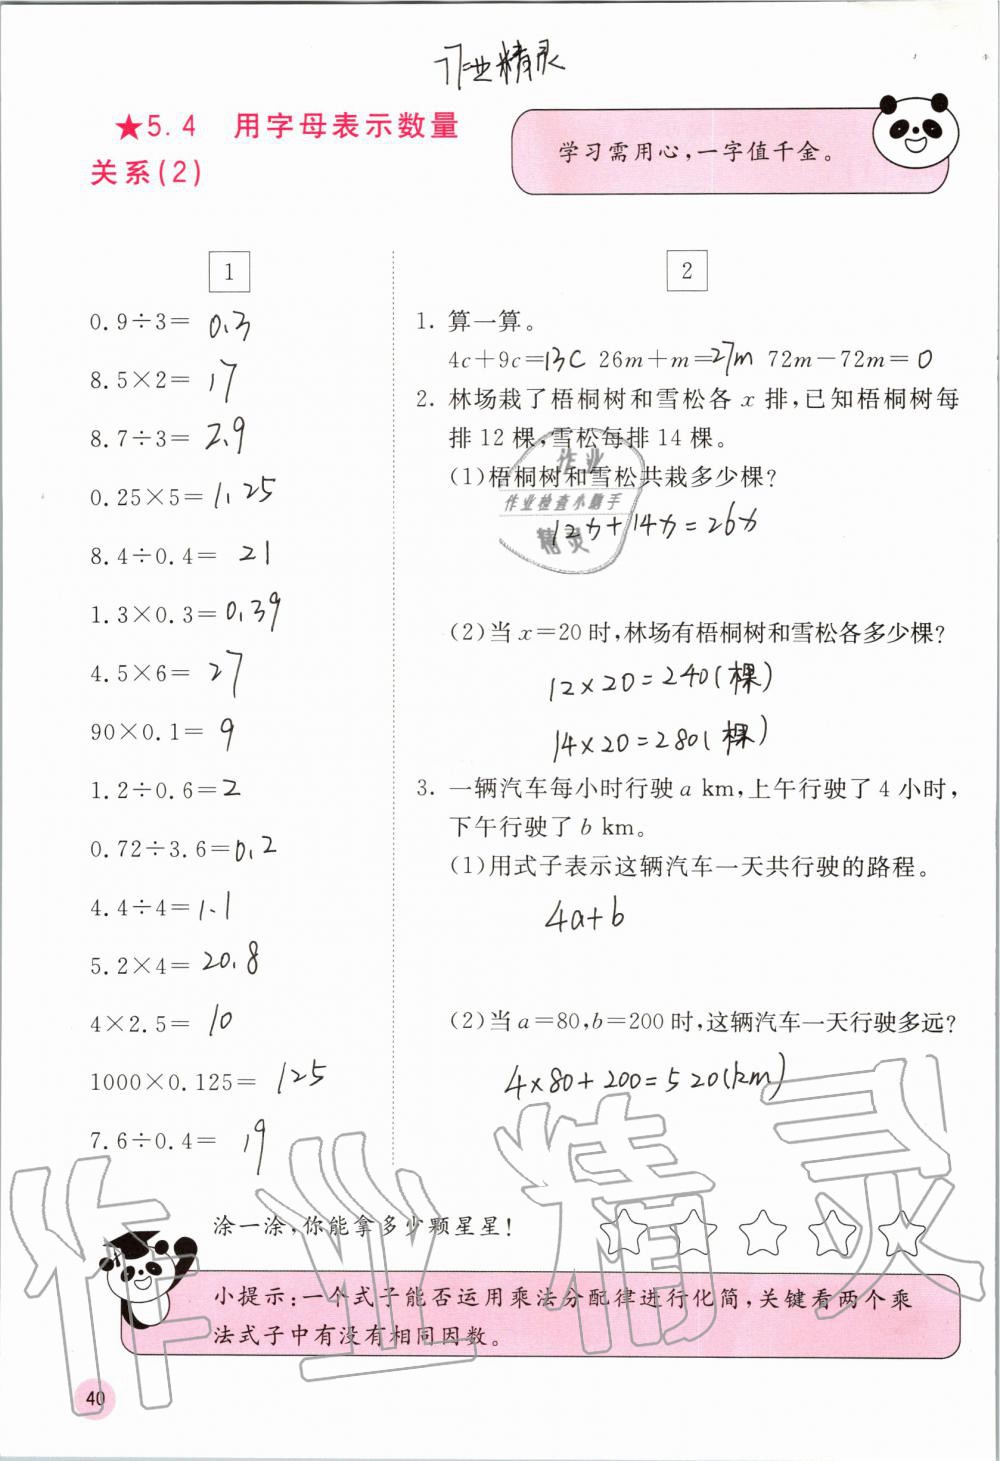 作业精灵
★5.4 用字母表示数量
关系(2)
学习需用心,一字值千金。
1
0.9÷3= 0.3
8.5×2= 17
8.7÷3= 2.9
0.25×5= 1.25
8.4÷0.4= 21
1.3×0.3= 0.39
4.5×6= 27
90×0.1= 9
1.2÷0.6= 2
0.72÷3.6= 0.2
4.4÷4= 1.1
5.2×4= 20.8
4×2.5= 10
1000×0.125= 125
7.6÷0.4= 19
2
1. 算一算。
4c+9c=13c 26m+m=27m 72m-72m=0
2. 林场栽了梧桐树和雪松各 x 排,已知梧桐树每
排 12 棵,雪松每排 14 棵。
(1)梧桐树和雪松共栽多少棵?
12x+14x=26x
(2)当 x=20 时,林场有梧桐树和雪松各多少棵?
12×20=240(棵)
14×20=280(棵)
3. 一辆汽车每小时行驶 a km,上午行驶了 4 小时,
下午行驶了 b km。
(1)用式子表示这辆汽车一天共行驶的路程。
4a+b
(2)当 a=80,b=200 时,这辆汽车一天行驶多远?
4×80+200=520(km)
作业
作业检查小助手
精灵
作业精灵
涂一涂,你能拿多少颗星星!
小提示:一个式子能否运用乘法分配律进行化简,关键看两个乘
法式子中有没有相同因数。
40